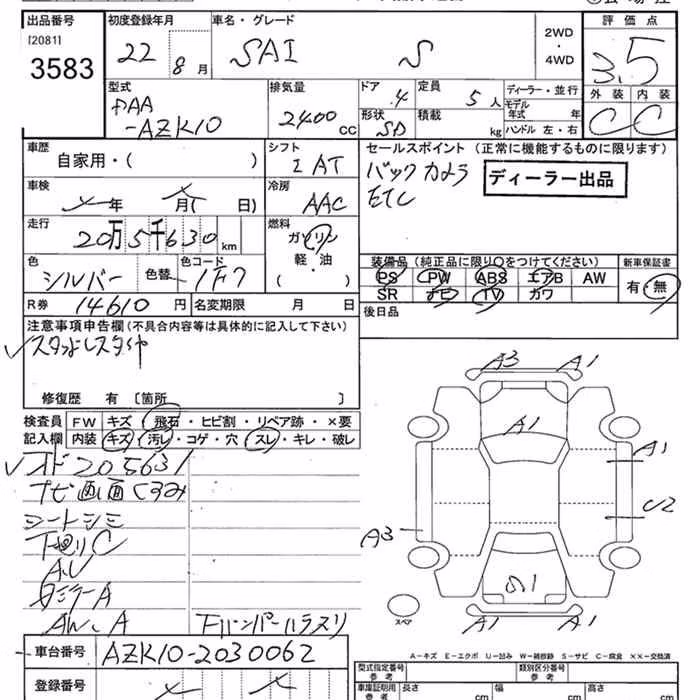 出品番号 初度登録年月 車名・グレード 2WD・4WD 評価点
[2081]
3583 22 8月 SAI S 3.5
外装 内装
C C
型式 排気量 ドア 定員 ディーラー・並行
DAA-AZK10 2400cc 4 5人 モデル年式 年
形状 積載 kg ハンドル 左・右
SD
車歴 シフト セールスポイント (正常に機能するものに限ります)
自家用・( ) I AT バックカメラ ディーラー出品
車検 冷房 ETC
年 月( 日) AAC
走行 燃料
20万5千630km ガソリン
軽・油
( )
色 色替 色コード 装備品(純正品に限り○をつけてください) 新車保証書
シルバー 1F7 PS PW ABS エアB AW 有・無
SR ナビ TV カワ
R券 14610円 名変期限 月 日 後日品
注意事項申告欄(不具合内容等は具体的に記入して下さい)
修復歴 有 〔箇所 〕
検査員記入欄 FW キズ・飛石・ヒビ割・リペア跡・×要
内装 キズ・汚レ・コゲ・穴・スレ・キレ・破レ
205631
ナビ画面くすみ
シートシミ
下廻りC
A3 A1
A1
A1
A3 U2
A1 A1
スペア
A−キズ E−エクボ U−凹み W−補修跡 S−サビ C−腐食 ××−交換済
車台番号 AZK10-2030062
登録番号
型式指定番号 参考 類別区分番号 参考
車庫証明用 参考 長さ cm 幅 cm 高さ cm